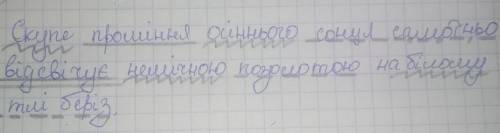 Скупе проміння осіннього сонця самобтньо
відсвічує немічною позолотою на білому
тлі беріз.